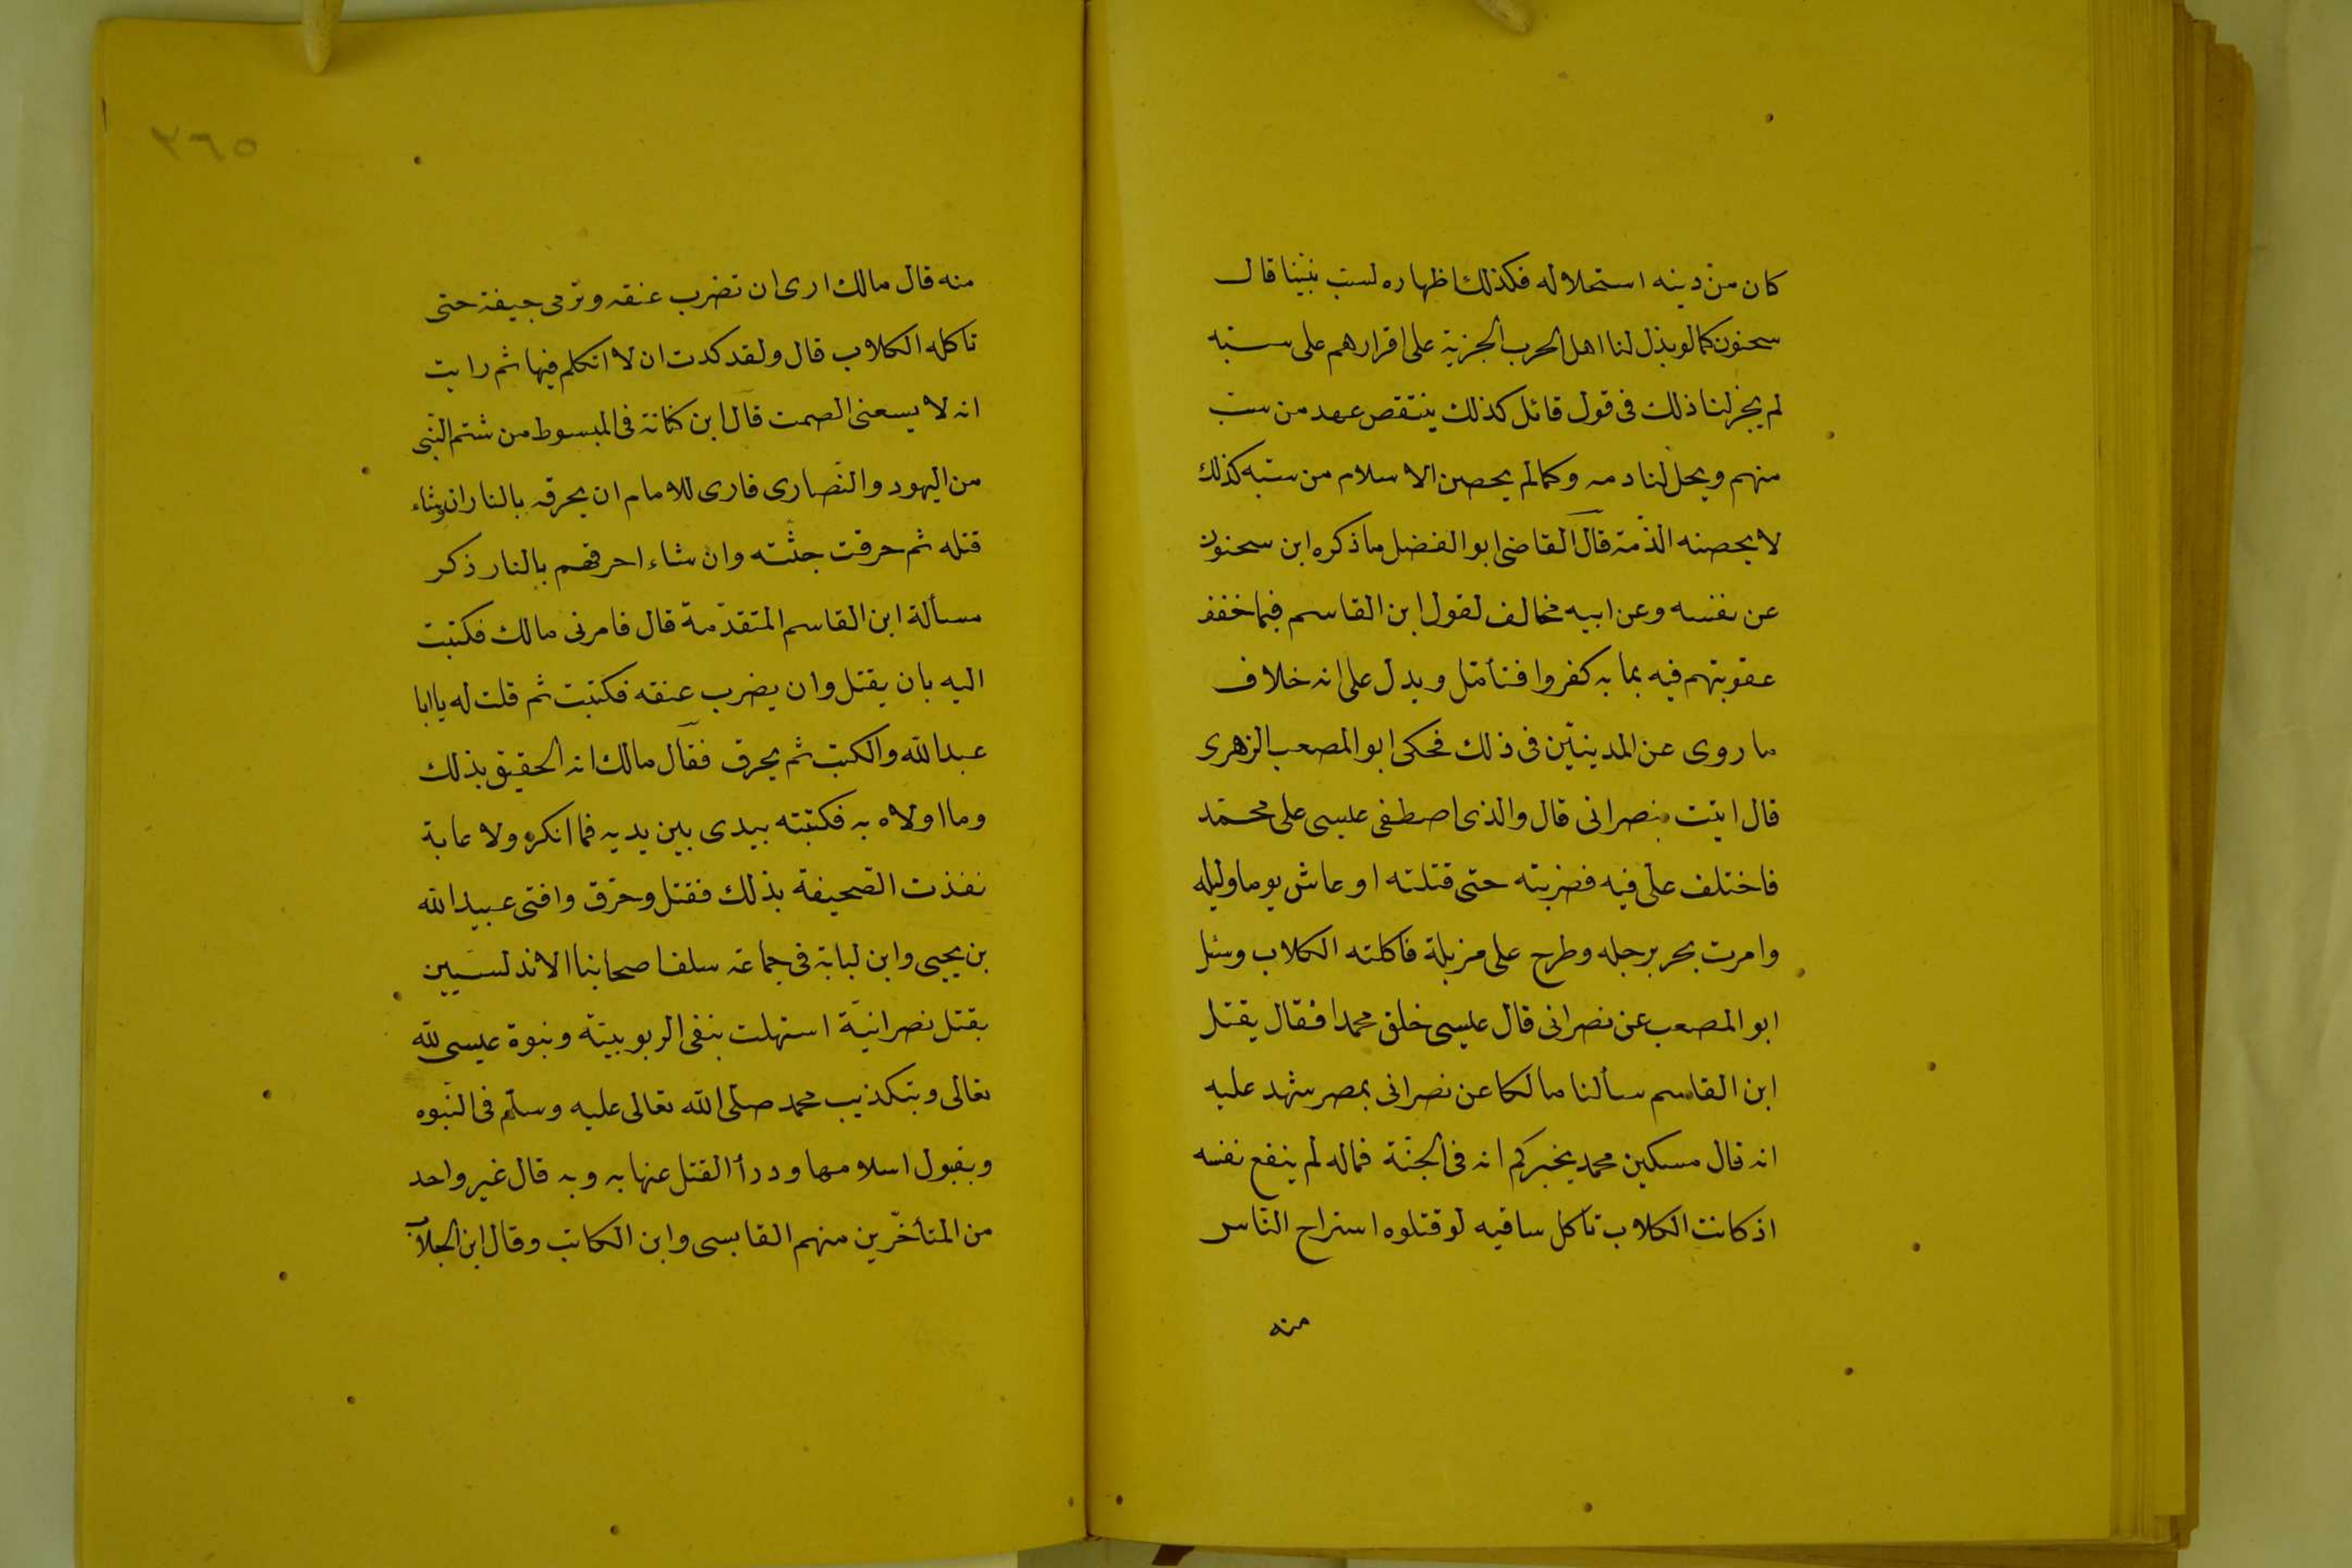 كان من دينه استحلاله فكذلك اظهاره لسب نبينا قال
سحنون كما لو بذل لنا اهل الحرب الجزية على اقرارهم على سبه
لم يجز لنا ذلك فى قول قائل كذلك ينتقض عهد من سب
منهم ويحل لنا دمه وكما لم يحصن الاسلام من سبه كذلك
لا يحصنه الذمة قال القاضى ابو الفضل ما ذكره ابن سحنون
عن نفسه وعن ابيه مخالف لقول ابن القاسم فيما خفف
عقوبتهم فيه بما به كفروا فتأمل ويدل على انه خلاف
ما روى عن المدينيين فى ذلك فحكى ابو المصعب الزهرى
قال اتيت بنصرانى قال والذى اصطفى عيسى على محمد
فاختلف على فيه فضربته حتى قتلته او عاش يوما وليله
وامرت بجر برجله وطرح على مزبلة فاكلته الكلاب وسئل
ابو المصعب عن نصرانى قال عيسى خلق محمدا فقال يقتل
ابن القاسم سألنا مالكا عن نصرانى بمصر شهد عليه
انه قال مسكين محمد يخبركم انه فى الجنة فماله لم ينفع نفسه
اذ كانت الكلاب تاكل ساقيه لو قتلوه استراح الناس
منه
٣٦٥
منه قال مالك ارى ان تضرب عنقه وترمى جيفة حتى
تاكله الكلاب قال ولقد كدت ان لا اتكلم فيها ثم رايت
انه لا يسعنى الصمت قال ابن كنانة فى المبسوط من شتم النبى
من اليهود والنصارى فارى للامام ان يحرقه بالنار ان شاء
قتله ثم حرقت جثته وان شاء احرقهم بالنار ذكر
مسألة ابن القاسم المتقدمة قال فامرنى مالك فكتبت
اليه بان يقتل وان يضرب عنقه فكتبت ثم قلت له يا ابا
عبد الله والكتب ثم يحرق فقال مالك انه الحقيق بذلك
وما اولاه به فكتبته بيدى بين يديه فما انكره ولا عابة
نفذت الصحيفة بذلك فقتل وحرق وافتى عبيد الله
بن يحيى وابن لبابة فى جماعة سلف اصحابنا الاندلسيين
بقتل نصرانية استهلت بنفى الربوبية وبنوة عيسى لله
تعالى وبتكذيب محمد صلى الله تعالى عليه وسلم فى النبوه
وبقبول اسلامها ودرأ القتل عنها به وبه قال غير واحد
من المتأخرين منهم القابسى وابن الكاتب وقال ابن الجلاب